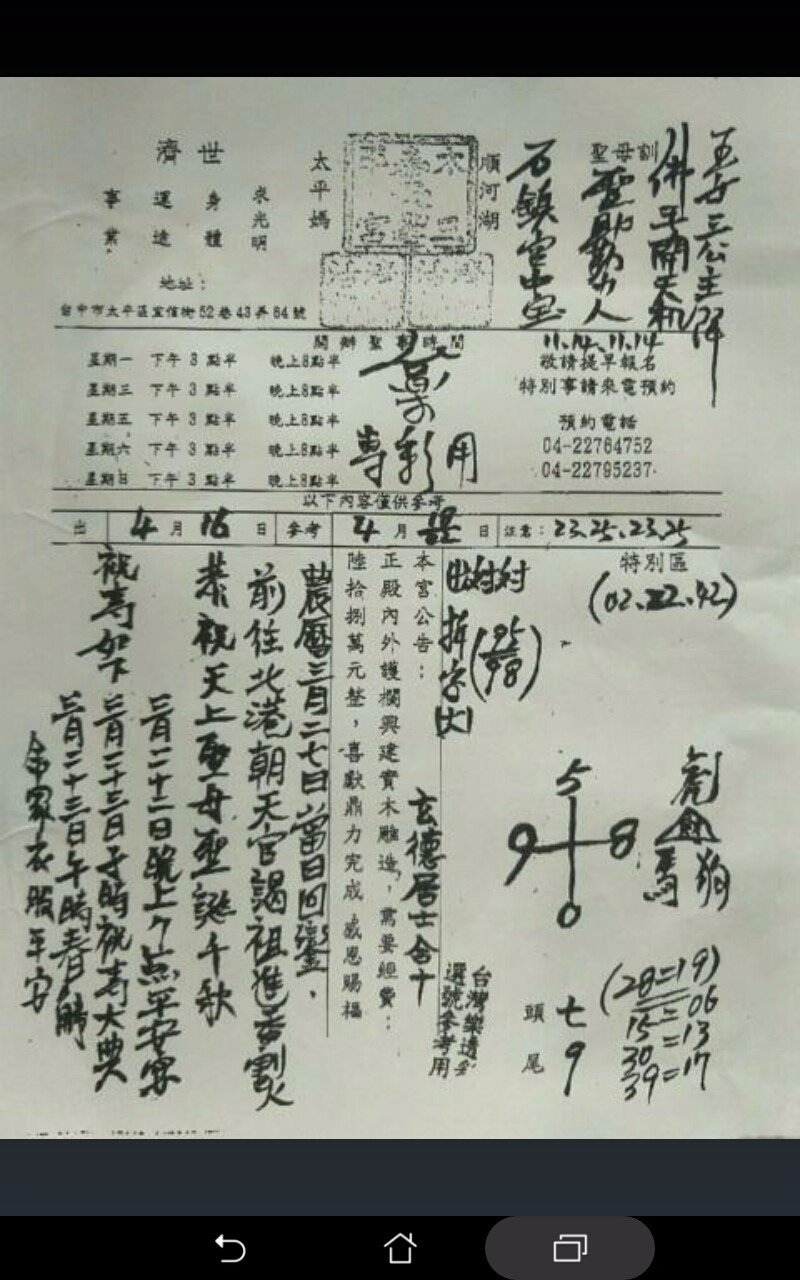 五女三公主降
佛子開天機
聖母訓
聖助世人
石鎮宮中宝
11.14.11.14
順河湖
太平媽
濟世
求光明
身體
運途
事業
地址：
台中市太平區宜信街52巷43弄64號
開辦聖事時間
星期一 下午3點半 晚上8點半
星期三 下午3點半 晚上8點半
星期五 下午3點半 晚上8點半
星期六 下午3點半 晚上8點半
星期日 下午3點半 晚上8點半
專彩用
敬請提早報名
特別事請來電預約
預約電話
04-22764752
04-22795237
以下內容僅供參考
出 4月16日 參考 4月 日 注意：23.25.23.25
特別區
(02.22.42)
拆字
5
9 8
0
虎
馬 狗
(28=19)
15=06
=13
30
39=17
頭 七
尾 9
台灣樂透彩
選號參考用
本宮公告：
正殿內外護欄興建實木雕造，需要經費：
陸拾捌萬元整，喜獻鼎力完成 感恩賜福
玄德居士合十
農曆三月二七日當日回鑾．
前往北港朝天宮謁祖進香割火
恭祝天上聖母聖誕千秋
祝壽如下
三月二十二日晚上7点平安宴
三月二十三日子時祝壽大典
三月二十三日午時